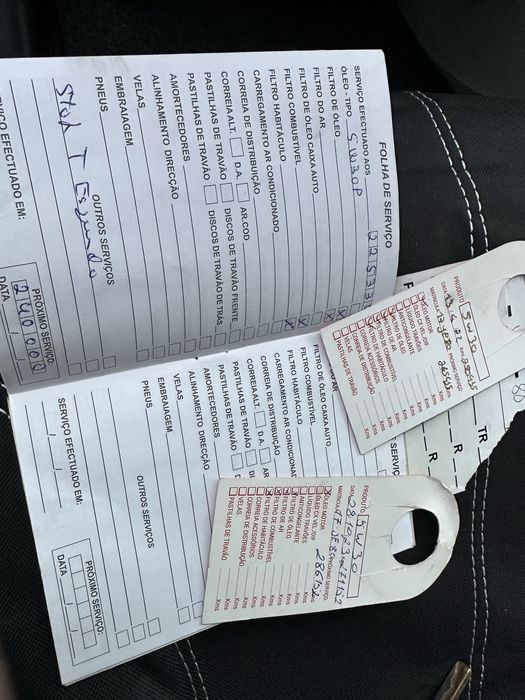 FOLHA DE SERVIÇO
SERVIÇO EFECTUADO AOS
ÓLEO - TIPO 5W30P
FILTRO DE ÓLEO
FILTRO DO AR
FILTRO DE ÓLEO CAIXA AUTO
FILTRO COMBUSTÍVEL
FILTRO HABITÁCULO
CARREGAMENTO AR CONDICIONADO
CORREIA DE DISTRIBUIÇÃO
CORREIA ALT. D.A. AR.COD
PASTILHAS DE TRAVÃO DISCOS DE TRAVÃO FRENTE
PASTILHAS DE TRAVÃO DISCOS DE TRAVÃO TRAS
AMORTECEDORES
ALINHAMENTO DIRECÇÃO
VELAS
EMBRAIAGEM
PNEUS
OUTROS SERVIÇOS
PRÓXIMO SERVIÇO:
240000
DATA
FILTRO DE ÓLEO CAIXA AUTO
FILTRO COMBUSTÍVEL
FILTRO HABITÁCULO
CARREGAMENTO AR CONDICIONA
CORREIA DE DISTRIBUIÇÃO
CORREIA ALT. D.A. AR
PASTILHAS DE TRAVÃO
PASTILHAS DE TRAVÃO
AMORTECEDORES
ALINHAMENTO DIRECÇÃO
VELAS
EMBRAIAGEM
PNEUS
OUTROS SERVIÇOS
SERVIÇO EFECTUADO EM:
PRÓXIMO SERVIÇO:
DATA
PRODUTO 5W30
DATA
MATRICULA PRÓXIMO SERVIÇO:
ÓLEO MOTOR Kms
ÓLEO CX VEL./DIF Kms
LÍQUIDO TRAVÕES Kms
ANTICONGELANTE Kms
FILTRO DE ÓLEO Kms
FILTRO DE AR Kms
FILTRO DE COMBUSTÍVEL Kms
FILTRO DE HABITÁCULO Kms
CORREIA ACESSÓRIOS Kms
CORREIA DE DISTRIBUIÇÃO Kms
VELAS Kms
PASTILHAS DE TRAVÃO Kms
TR
R
R
PRODUTO 5W30
DATA
MATRICULA PRÓXIMO SERVIÇO:
ÓLEO MOTOR 286152 Kms
ÓLEO CX VEL./DIF Kms
LÍQUIDO TRAVÕES Kms
ANTICONGELANTE Kms
FILTRO DE ÓLEO Kms
FILTRO DE AR Kms
FILTRO DE COMBUSTÍVEL Kms
FILTRO DE HABITÁCULO Kms
CORREIA ACESSÓRIOS Kms
CORREIA DE DISTRIBUIÇÃO Kms
VELAS Kms
PASTILHAS DE TRAVÃO Kms